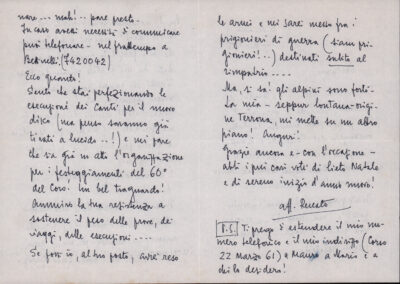 nare ... mah! .. pare presto.
In caso avessi necessità di comunicare
puoi telefonare - nel frattempo a
Bettinelli. (7420042)
Ecco quanto!
Sento che stai perfezionando le
esecuzioni dei Canti per il nuovo
disco (ma penso saranno già
tirati a lucido ..!) e mi pare
che sia già in atto l'organizzazione
per i festeggiamenti del 60°
del Coro. Un bel traguardo!
Ammiro la tua resistenza a
sostenere il peso delle prove, dei
viaggi, delle esecuzioni ....
Se fossi io, al tuo posto, avrei reso
le armi e mi sarei messo fra i
prigionieri di guerra (siam pri-
gionieri! ..) destinati subito al
rimpatrio ....
Ma, si sa! gli alpini sono forti.
La mia - seppur lontana - origi-
ne Terrona, mi mette su un altro
piano! Auguri!
Grazie ancora e - con l'occasione -
abbi i più cari voti di lieto Natale
e di sereno inizio d'anno nuovo.
aff. Renato
P.S. Ti prego di estendere il mio nu-
mero telefonico e il mio indirizzo (Corso
22 Marzo 61) a Mauro a Mario e a
chi lo desidera!